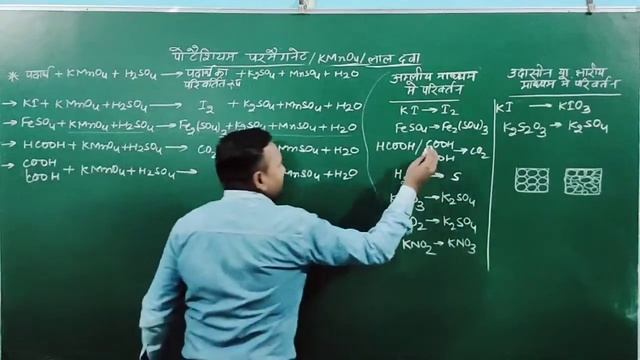 पोटैशियम परमैंगनेट/KMnO4/लाल दवा
* पदार्थ + KMnO4 + H2SO4 → पदार्थ का परिवर्तित रूप + K2SO4 + MnSO4 + H2O
→ KI + KMnO4 + H2SO4 → I2 + K2SO4 + MnSO4 + H2O
→ FeSO4 + KMnO4 + H2SO4 → Fe2(SO4)3 + K2SO4 + MnSO4 + H2O
→ HCOOH + KMnO4 + H2SO4 → CO2 MnSO4 + H2O
→ COOH
COOH + KMnO4 + H2SO4 → MnSO4 + H2O
अम्लीय माध्यम
में परिवर्तन
KI → I2
FeSO4 → Fe2(SO4)3
HCOOH / COOH
OH → CO2
H → S
O3 → K2SO4
O2 → K2SO4
KNO2 → KNO3
उदासीन या क्षारीय
माध्यम में परिवर्तन
KI → KIO3
K2S2O3 → K2SO4